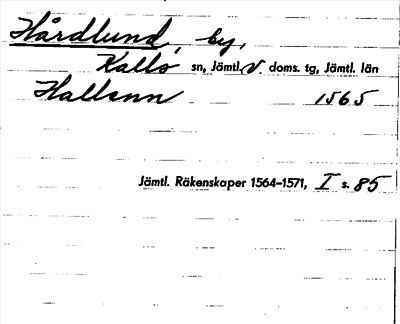 Hårdlund, by,
Kalls sn, Jämtl. V. doms. tg, Jämtl. län
Hallann 1565
Jämtl. Räkenskaper 1564-1571, I s. 85